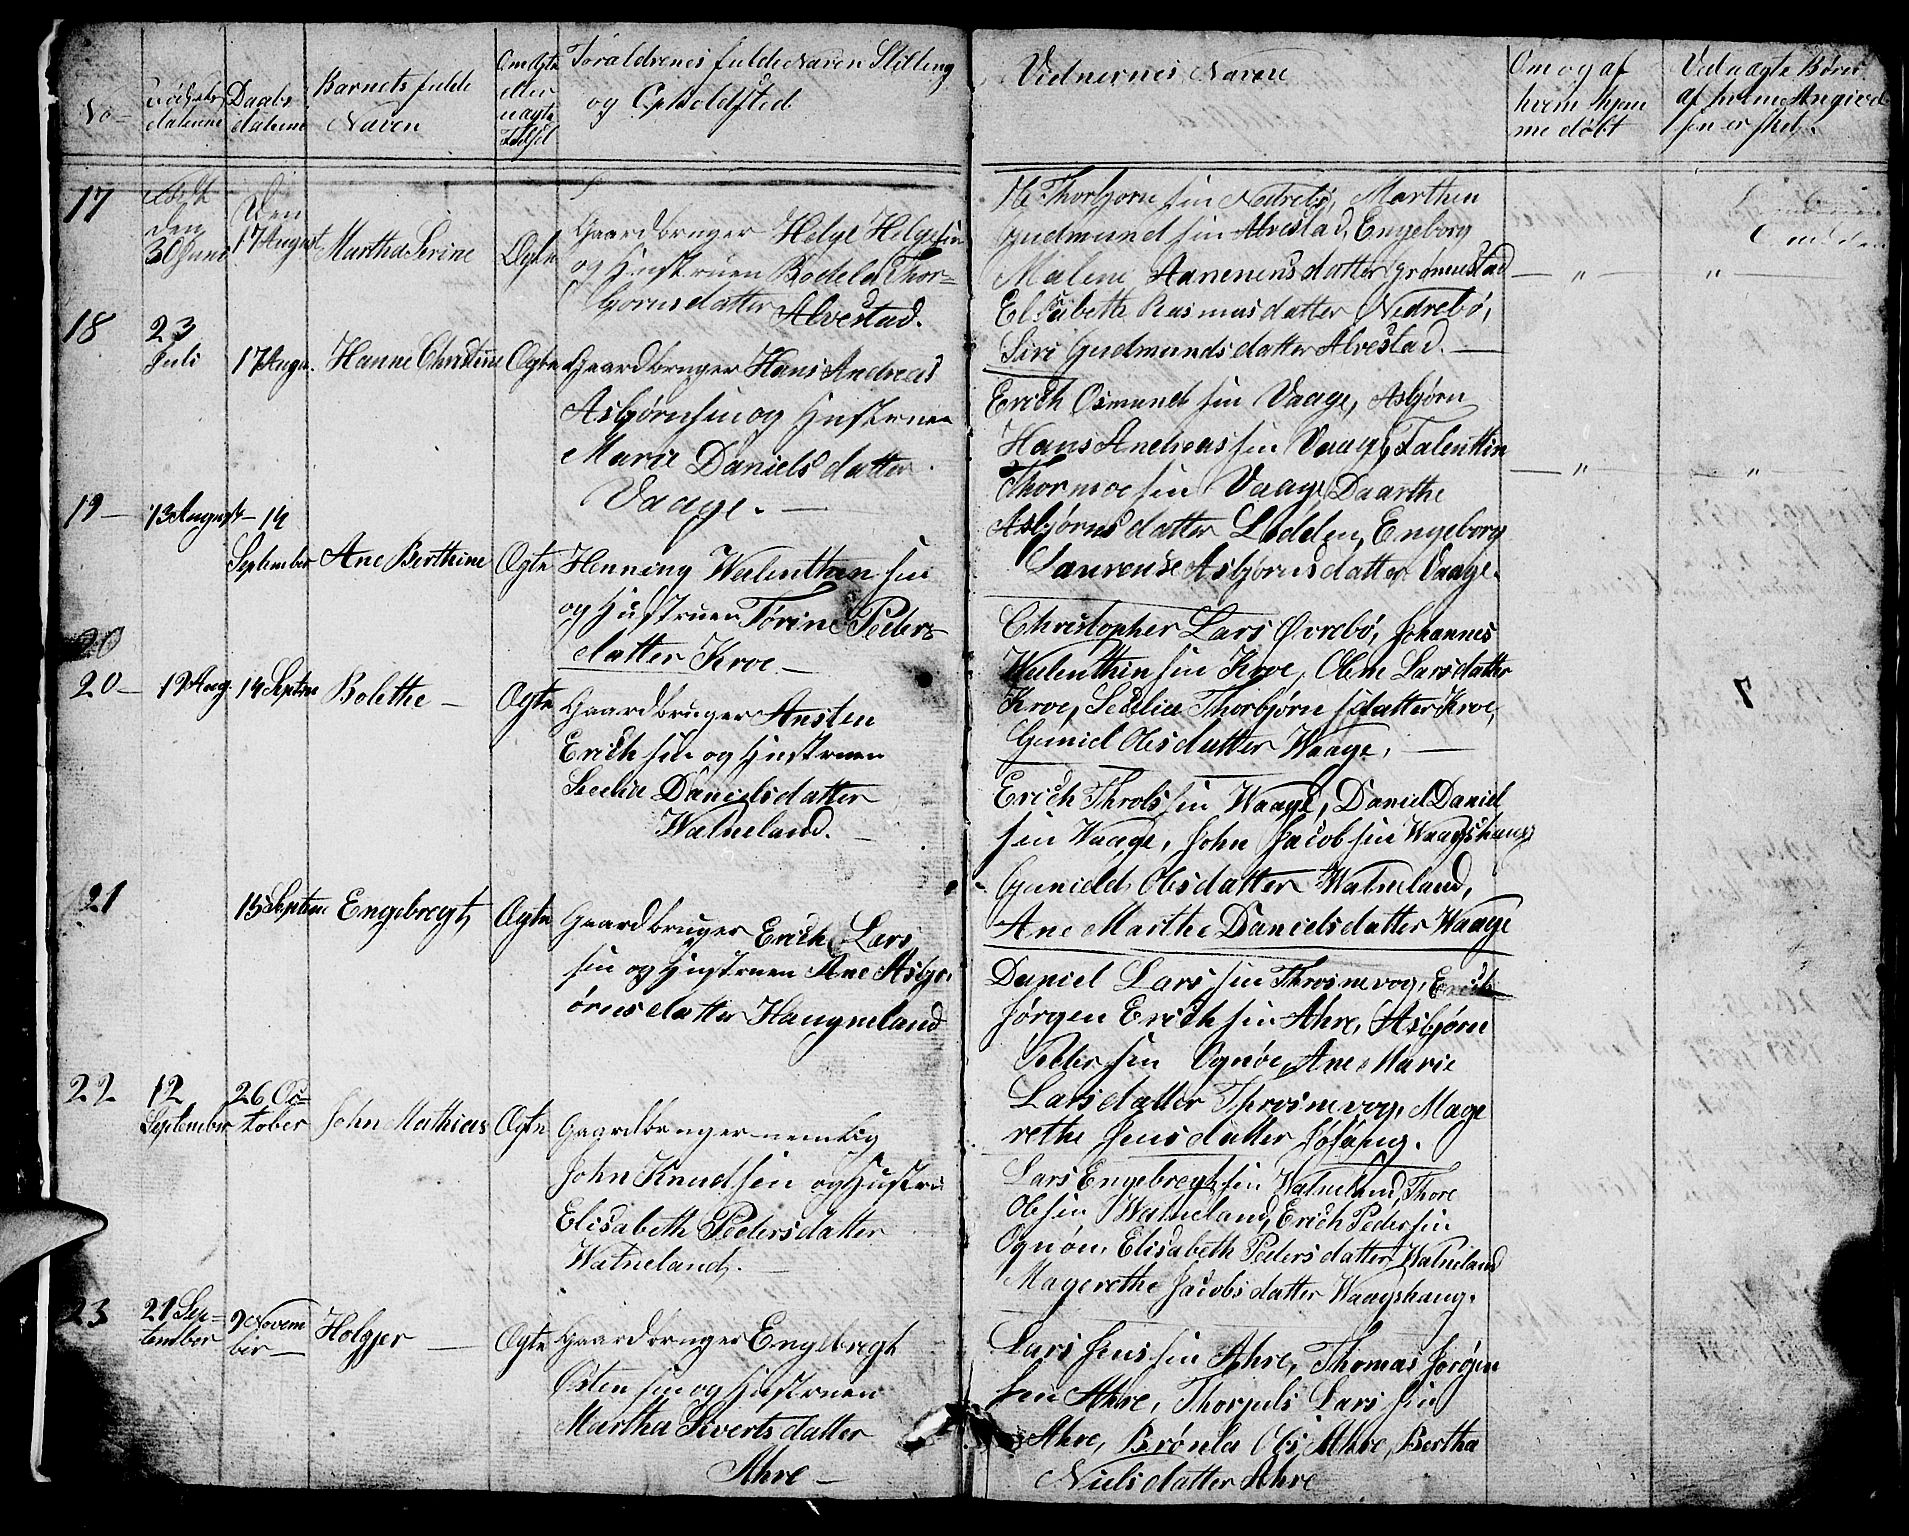 No
Fødsels
datoene
Daabs
datoene
Barnets fulde
Navn
Om Ægte
eller
uægte
Fødsel
Foraldrenes fulde Navn Stilling
og Opholdsted
Vidnernes Navne
Om og af
hvem hjem
me døbt
Ved uægte Børn
af hvem Angivel
sen er sket.
17
Født
den
30 Juni
Den
17 August
Martha Serine
Ægte
Gaardbruger Helge Helgesen
og Hustruen Bodela Thor-
bjørnsdatter Alvestad.
H. Thorbjørnsen Nedrebø, Marthen
Gudmundsen Alvestad, Engeborg
Malene Aanenensdatter Grønnestad
Elsabeth Rasmusdatter Nedrebø,
Siri Gudmundsdatter Alvestad. —
— " —
"
18
23
Juli
17 Augu.
Hanne Christine
Ægte
Gaardbruger Hans Andreas
Asbjørnsen og Hustruen
Marie Daniels datter
Vaage. —
Erich Osmundsen Vaage, Asbjørn
Hans Andreassen Vaage, Falentin
Thormoesen Vaage, Daarthe
Asbjørnsdatter Lødden, Engeborg
Laurense Asbjørnsdatter Vaage.
— " —
"
19 —
13 August
14
September
Ane Berthine
Ægte
Henning Walenthinsen
og Hustruen Tørine Peders
datter Kroe —
Christopher Lars Øvrebø, Johannes
Walenthinsen Kroe, Olene Larsdatter
Kroe, Sedelia Thorbjørnsdatter Kroe,
Gunild Olsdatter Waage. —
20
20 —
19 Aug.
14 Septem
Bolethe —
Ægte
Gaardbruger Ansten
Erichsen og Hustruen
Secelia Danielsdatter
Watneland. —
Erich Throlssen Waage, Daniel Daniel
sen Waage, John Jacobsen Waagshaug
Gunild Olsdatter Watneland,
Ane Marthe Danielsdatter Waage
21
15 Septem
Engebregt
Ægte
Gaardbruger Erich Lars
sen og Hustruen Ane Asbj
ørnsdatter Haugneland
Daniel Larssen Throsnevog, Erich
Jørgen Erichsen Ahre, Asbjørn
Pedersen Ognøe, Ane Marie
Larsdatter Throsnevog, Mage
rethe Jensdatter Jøsang.
22
12
September
26 Oc-
tober
John Mathias
Ægte
Gaardbruger nemlig
John Knudsen og Hustru
Elisabeth Pedersdatter
Watneland. —
Lars Engebregtsen Watneland, Thore
Olsen Watneland, Erich Pedersen
Ognøn, Elisabeth Pedersdatter Watneland
Magerethe Jacobsdatter Waagshaug.
23
21 Sep-
tember
9 Novem
ber —
Holgjer —
Ægte
Gaardbruger Engebregt
Østensen og Hustruen
Martha Sivertsdatter
Ahre —
Lars Jenssen Ahre, Thomas Jørgen
sen Ahre, Thorjuls Larssen
Ahre, Brønla Ols Ahre, Bertha
Nielsdatter Ahre